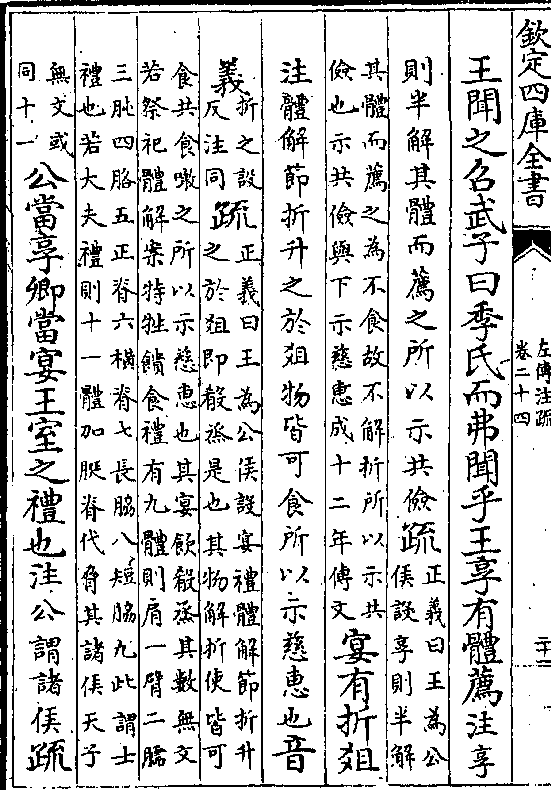 欽定四庫全書
左傳注疏
卷二十四
王聞之召武子曰季氏而弗聞乎王享有體薦注享
則半解其體而薦之所以示共儉疏
正義曰王為公
侯設享則半解
其體而薦之為不食故不解折所以示共
儉也示共儉與下示慈惠成十二年傳文
宴有折俎
注體解節折升之於俎物皆可食所以示慈惠也音
義
折之設
反注同
疏
正義曰王為公侯設宴禮體解節折升
之於俎即殽烝是也其物解折使皆可
食共食噉之所以示慈惠也其宴飲殽烝其數無文
若祭祀體解案特牲饋食禮有九體則肩一臂二臑
三肫四胳五正脊六橫脊七長脇八短脇九此謂士
禮也若大夫禮則十一體加脡脊代脅其諸侯天子
無文或
同十一
公當享卿當宴王室之禮也注公謂諸侯疏